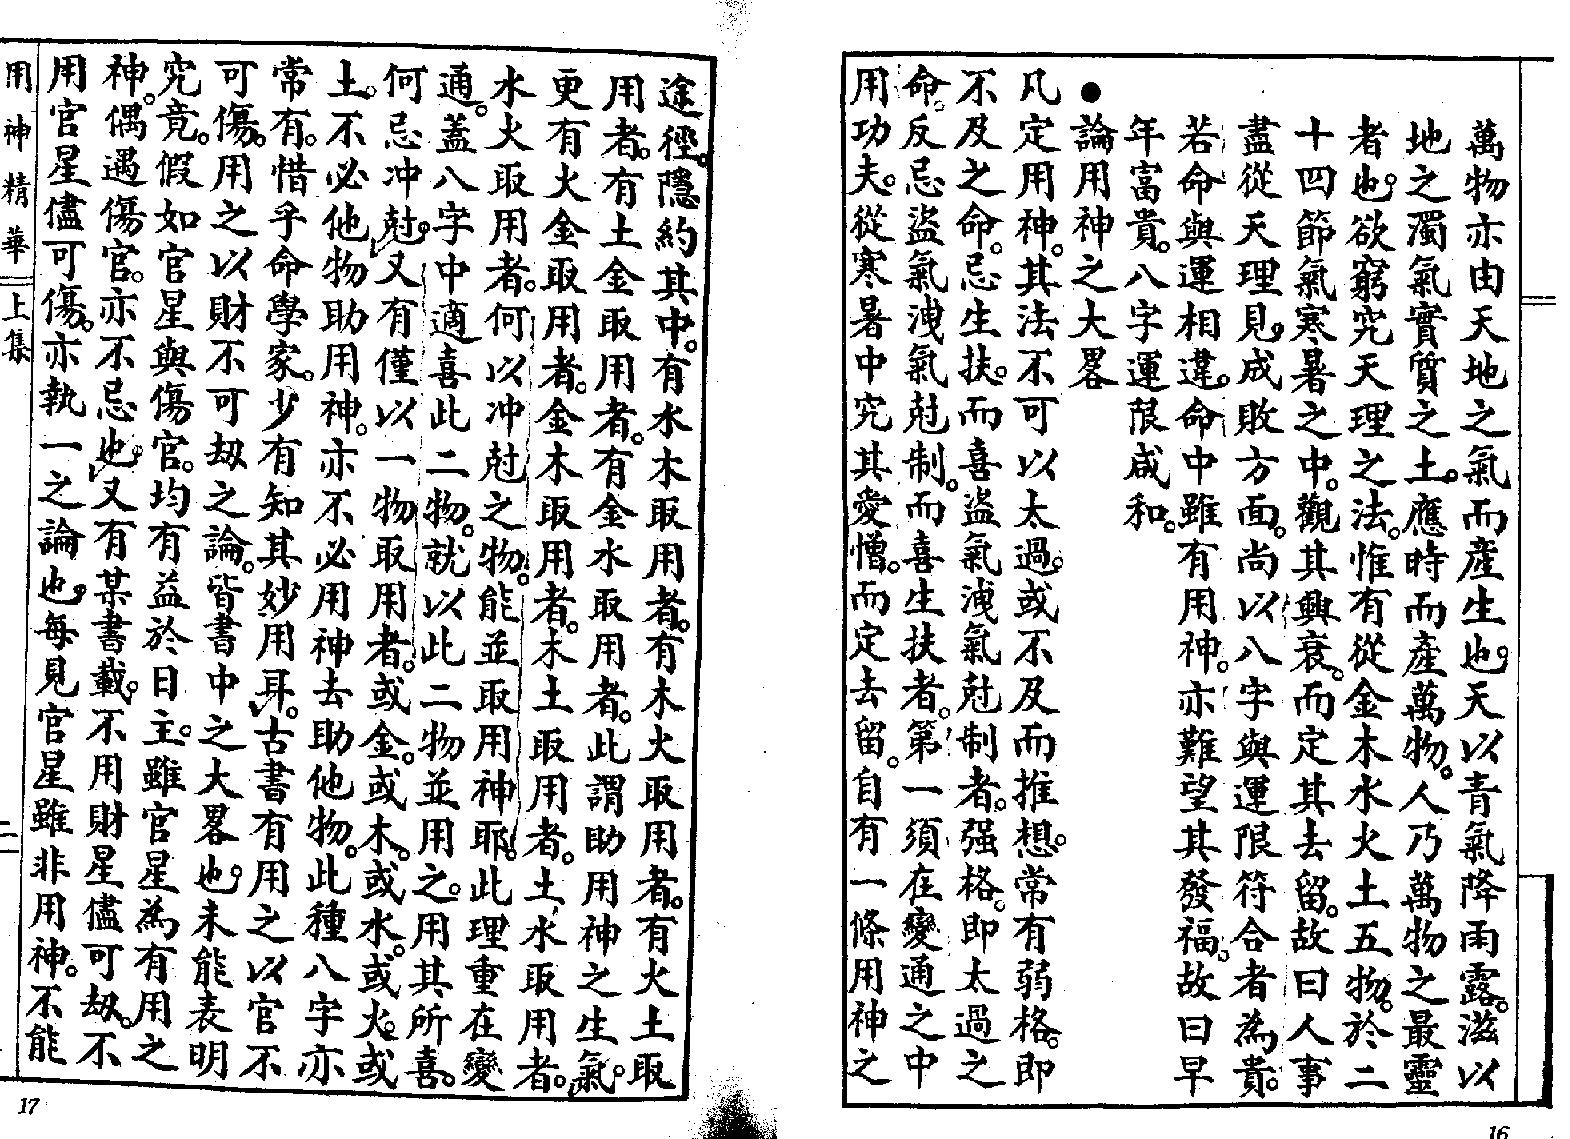 萬物亦由天地之氣而產生也。天以青氣降雨露。滋以
地之濁氣實質之土。應時而產萬物。人乃萬物之最靈
者也。欲窮究天理之法。惟有從金木水火土五物。於二
十四節氣寒暑之中。觀其興衰。而定其去留。故曰人事
盡從天理見。成敗方面。尚以八字與運限符合者為貴。
若命與運相違。命中雖有用神。亦難望其發福。故曰早
年富貴。八字運限咸和。
●論用神之大畧
凡定用神。其法不可以太過。或不及而推想。常有弱格。即
不及之命。忌生扶。而喜盜氣洩氣尅制者。强格。即太過之
命。反忌盜氣洩氣尅制。而喜生扶者。第一須在變通之中
用功夫。從寒暑中究其愛憎。而定去留。自有一條用神之
16
途徑。隱約其中。有水木取用者。有木火取用者。有火土取
用者。有土金取用者。有金水取用者。此謂助用神之生氣。
更有火金取用者。金木取用者。木土取用者。土水取用者。
水火取用者。何以冲尅之物。能並取用神耶。此理重在變
通。蓋八字中適喜此二物。就以此二物並用之。用其所喜。
何忌冲尅。又有僅以一物取用者。或金。或木。或水。或火。或
土。不必他物助用神。亦不必用神去助他物。此種八字亦
常有。惜乎命學家。少有知其妙用耳。古書有用之以官不
可傷。用之以財不可刼之論。皆書中之大畧也。未能表明
究竟。假如官星與傷官。均有益於日主。雖官星為有用之
神。偶遇傷官。亦不忌也。又有某書載。不用財星儘可刼。不
用官星儘可傷。亦執一之論也。每見官星雖非用神。不能
用神精華 上集
二
17